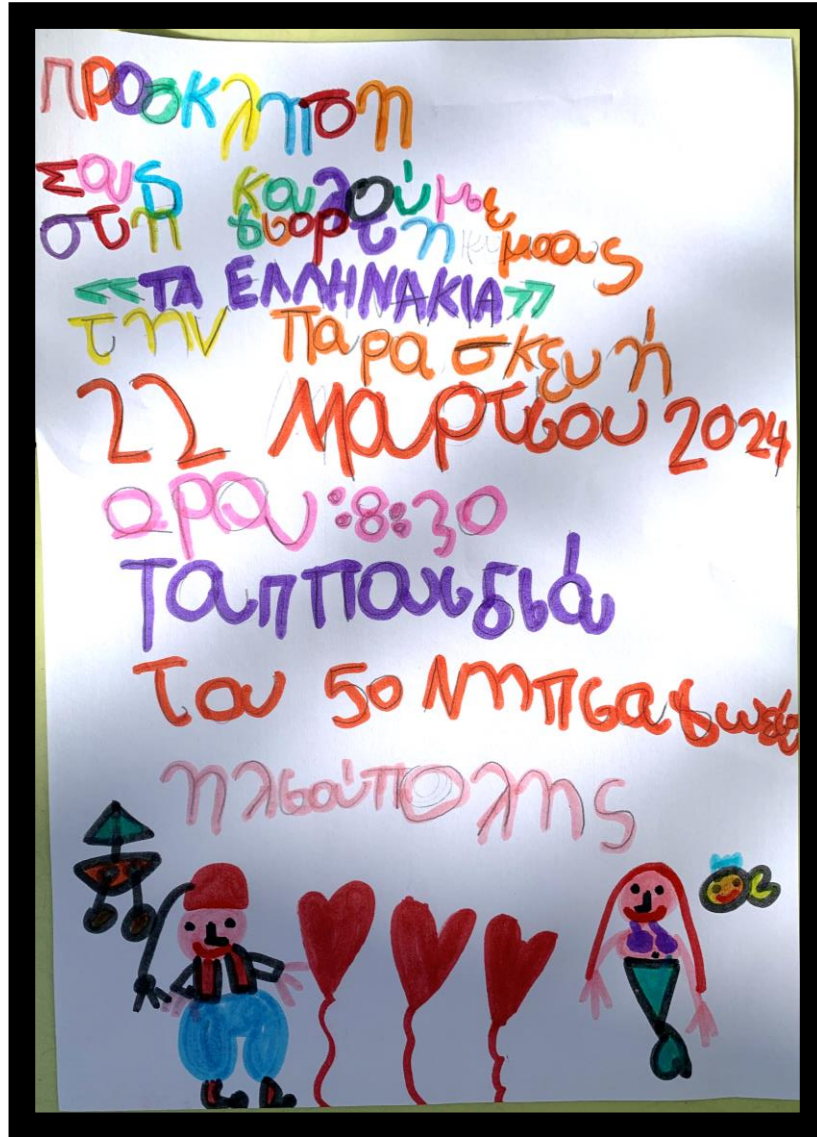 πρόσκληση
Σας καλούμε
στη γιορτή μας
«ΤΑ ΕΛΛΗΝΑΚΙΑ»
την Παρασκευή
22 Μαρτίου 2024
ωρα:8:30
Τα παιδιά
του 5ο Νηπιαγωγεί
ηλιούπολης